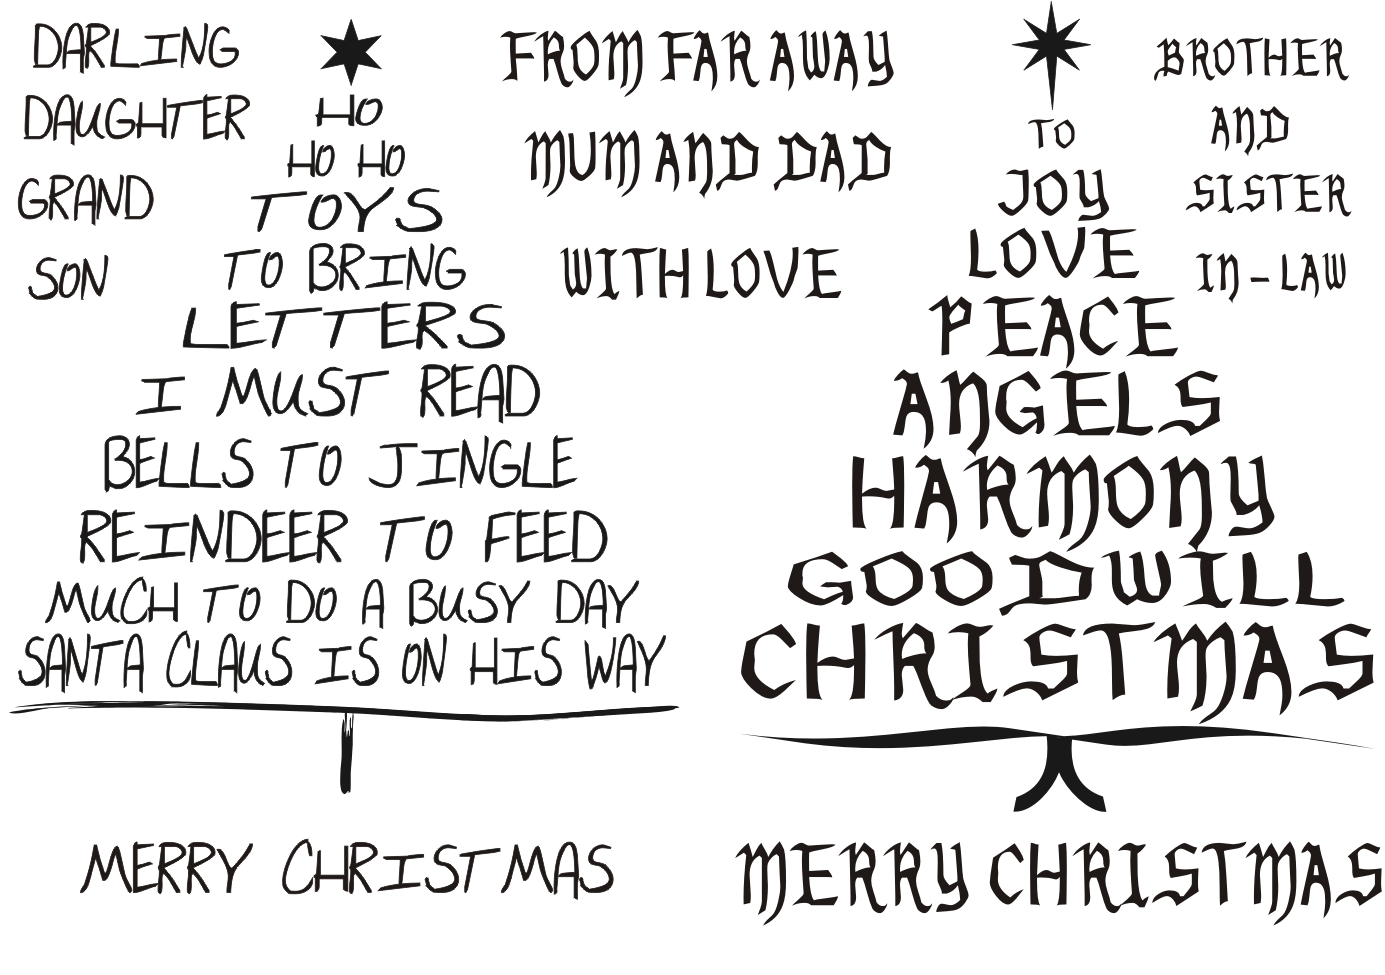 DARLING
DAUGHTER
GRAND
SON
HO
HO HO
TOYS
TO BRING
LETTERS
I MUST READ
BELLS TO JINGLE
REINDEER TO FEED
MUCH TO DO A BUSY DAY
SANTA CLAUS IS ON HIS WAY
MERRY CHRISTMAS
FROM FAR AWAY
MUM AND DAD
WITH LOVE
TO
JOY
LOVE
PEACE
ANGELS
HARMONY
GOODWILL
CHRISTMAS
MERRY CHRISTMAS
BROTHER
AND
SISTER
IN-LAW